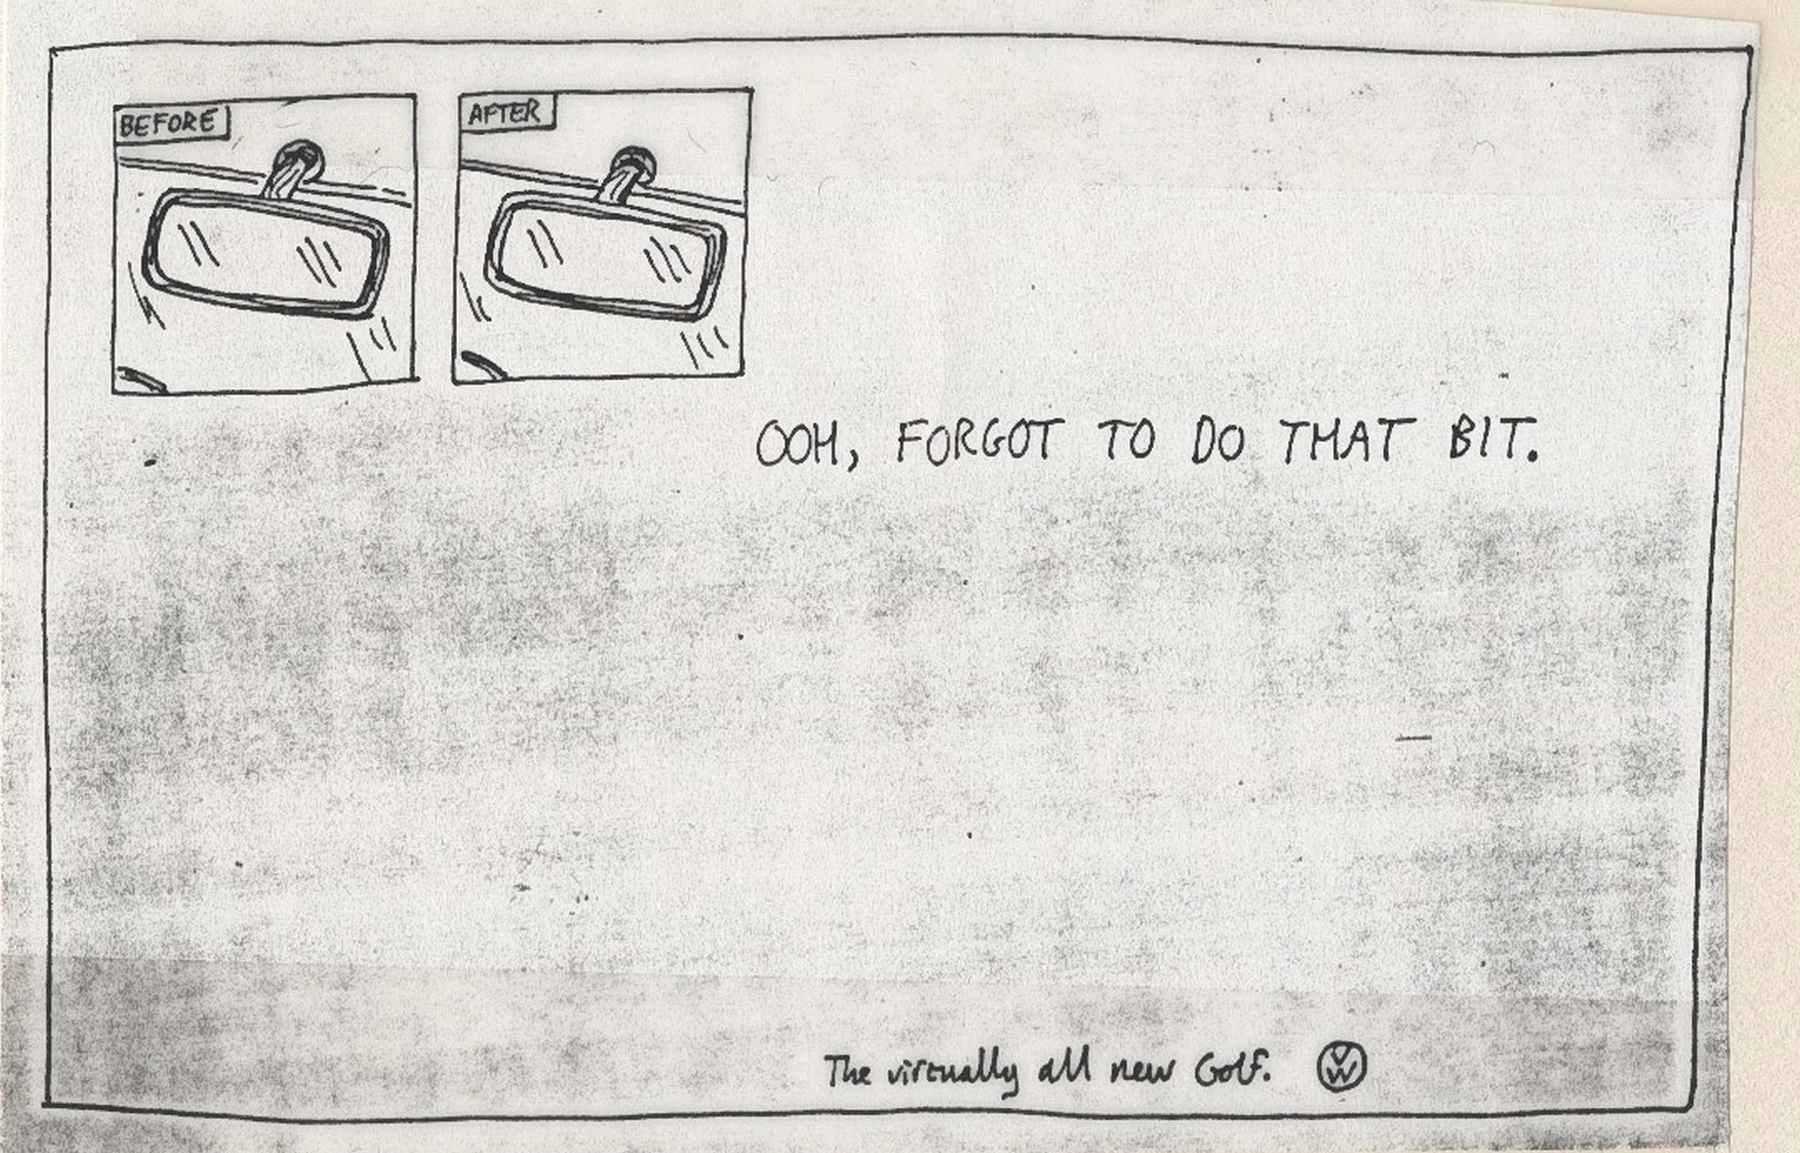 BEFORE
AFTER
OOH, FORGOT TO DO THAT BIT.
The virtually all new Golf.
VW